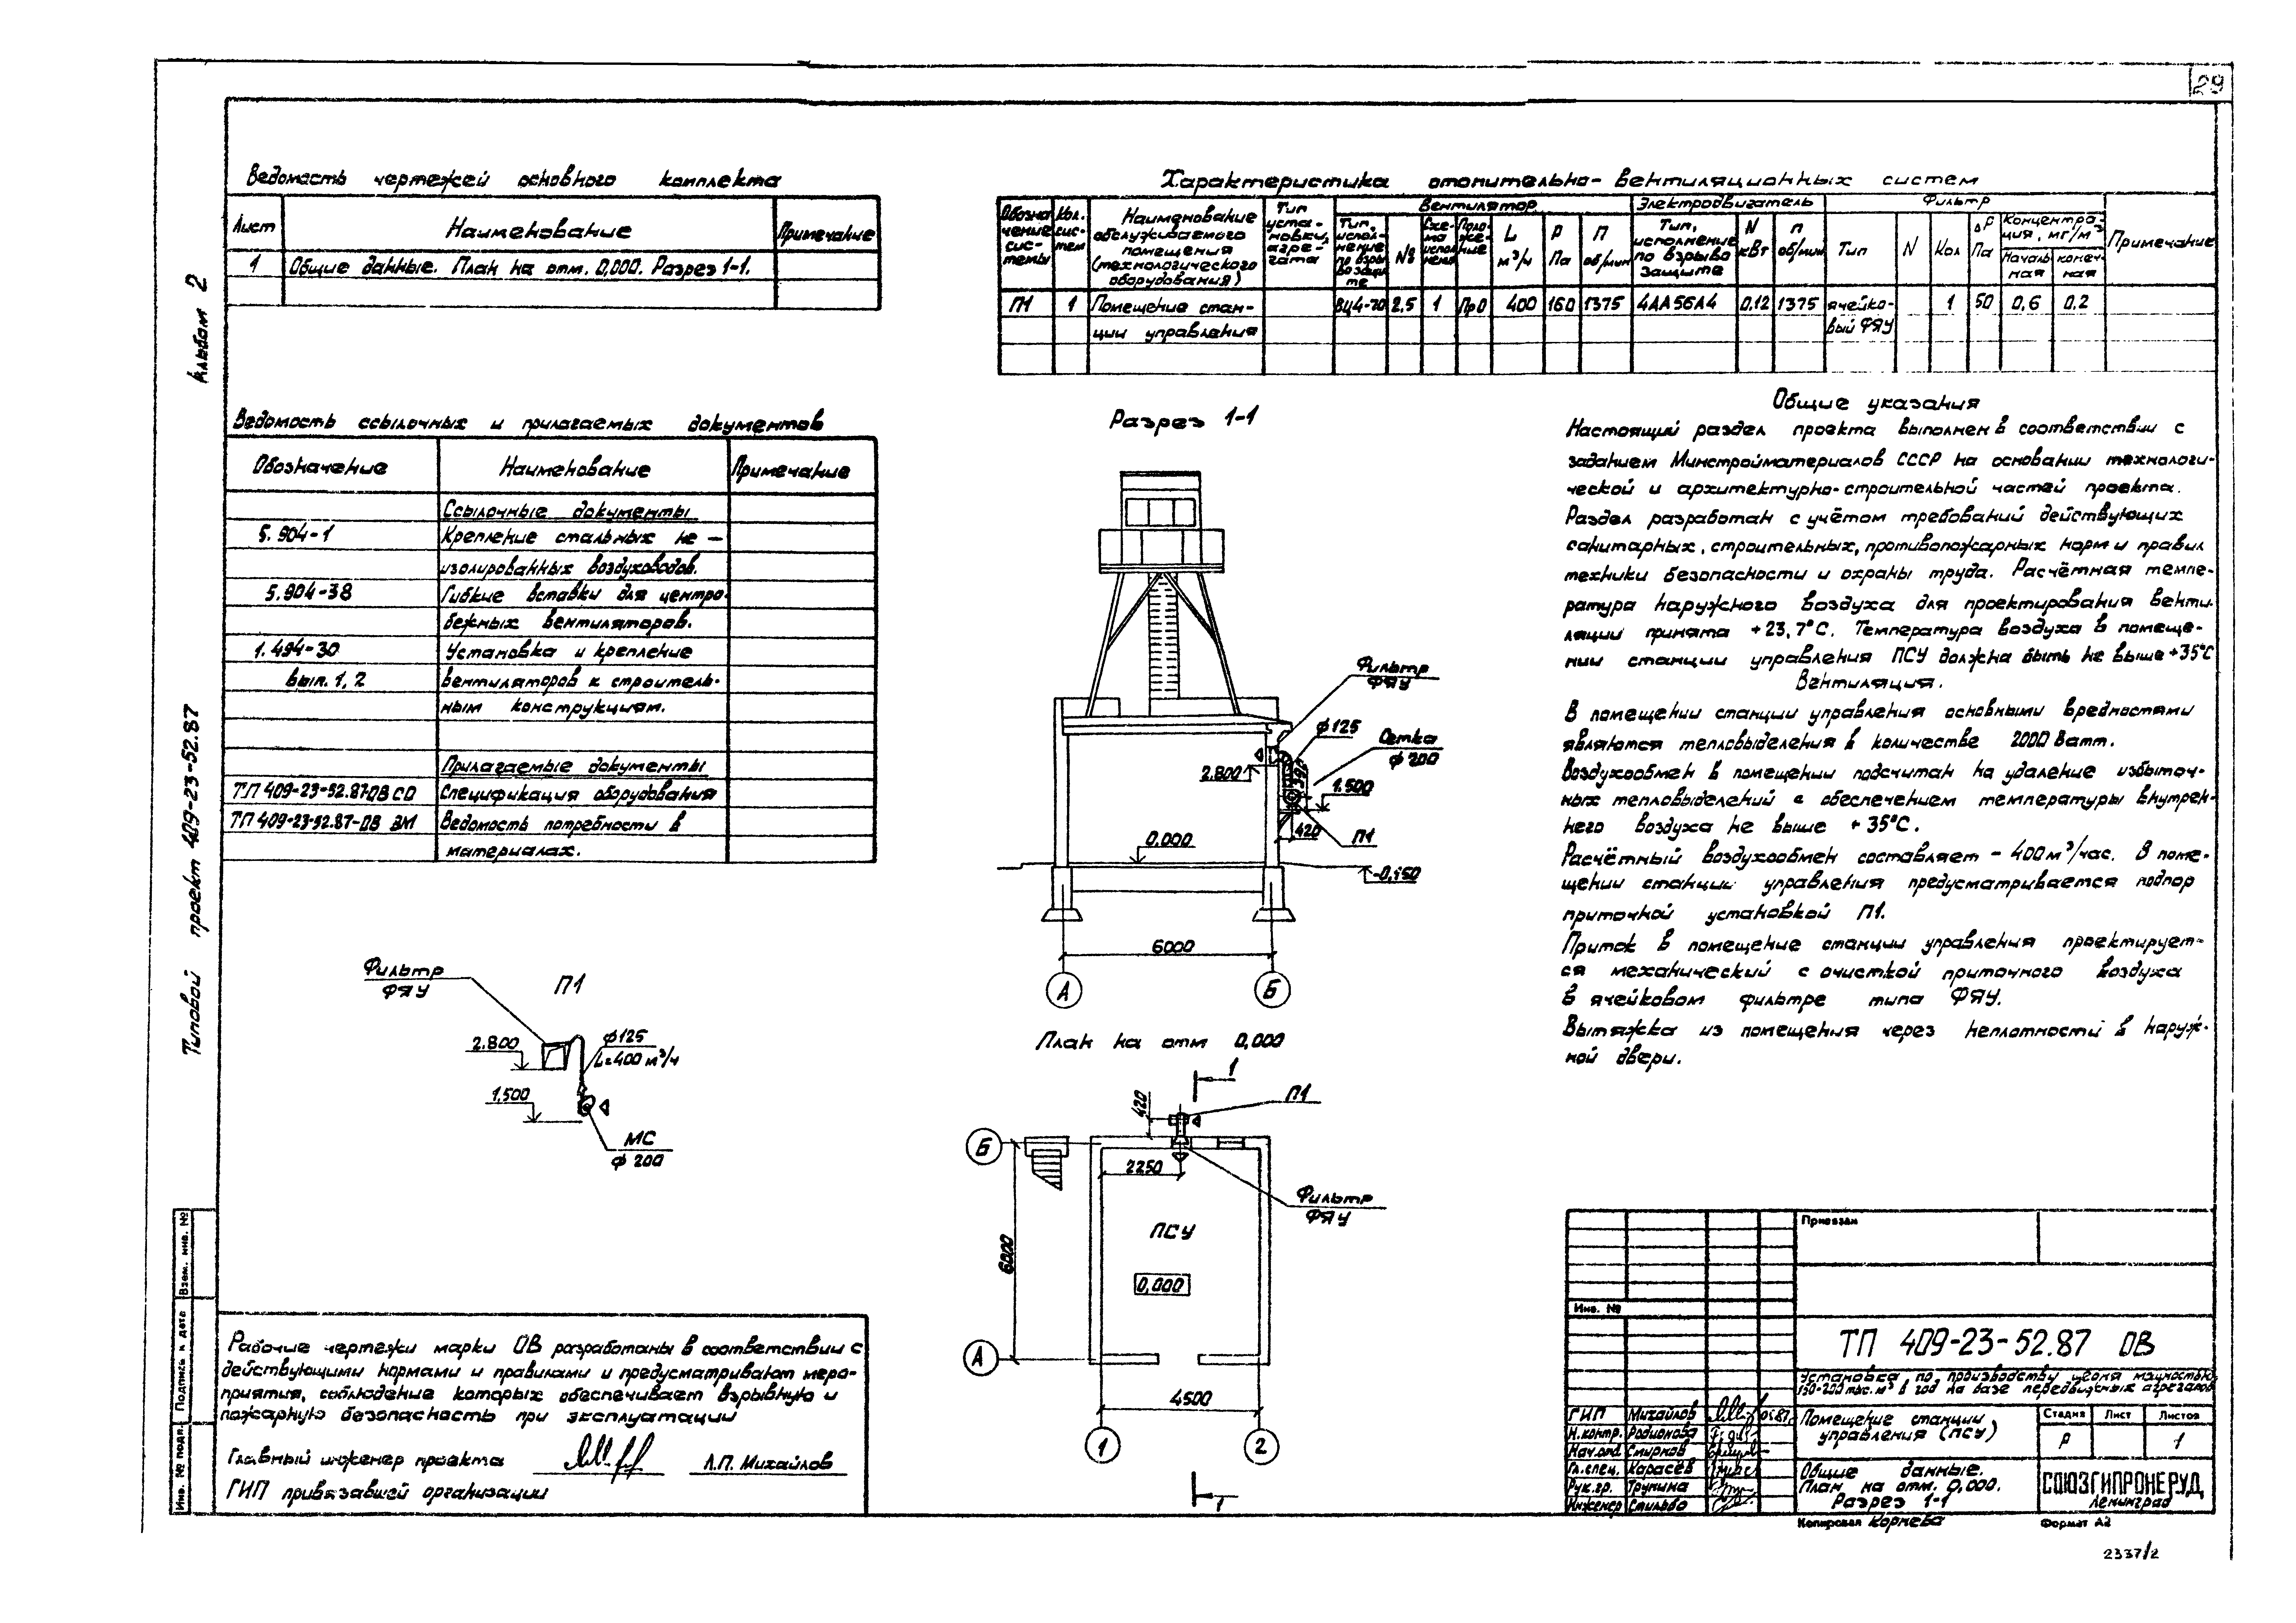 29
Альбом 2
Типовой проект 409-23-52.87
Ведомость чертежей основного комплекта
Лист Наименование Примечание
1 Общие данные. План на отм. 0,000. Разрез 1-1.
Ведомость ссылочных и прилагаемых документов
Обозначение Наименование Примечание
Ссылочные документы
5.904-1 Крепление стальных не-
изолированных воздуховодов.
5.904-38 Гибкие вставки для центро-
бежных вентиляторов.
1.494-30 Установка и крепление
вып. 1, 2 вентиляторов к строитель-
ным конструкциям.
Прилагаемые документы
ТП 409-23-52.87-ОВ СО Спецификация оборудования
ТП 409-23-52.87-ОВ ВМ Ведомость потребности в
материалах.
Фильтр
ФЯУ
П1
2.800
ф125
L=400 м³/ч
1.500
МС
ф 200
Рабочие чертежи марки ОВ разработаны в соответствии с
действующими нормами и правилами и предусматривают меро-
приятия, соблюдение которых обеспечивает взрывную и
пожарную безопасность при эксплуатации
Главный инженер проекта Л.П. Михайлов
ГИП привязавшей организации
Взам. инв. №
Подпись и дата
Инв. № подл.
Характеристика отопительно-вентиляционных систем
Обозначение системы
Кол. систем
Наименование обслуживаемого помещения (технологического оборудования)
Тип установки, агрегата
Вентилятор
Тип, исполнение по взрывозащите
№
Схема исполнения
Положение
L м³/ч
Р Па
П об/мин
Электродвигатель
Тип, исполнение по взрывозащите
N кВт
п об/мин
Фильтр
Тип
N
Кол
ΔР Па
Концентрация, мг/м³
Начальная
конечная
Примечание
П1 1 Помещение стан- ВЦ4-70 2,5 1 Пр0 400 160 1375 4АА56А4 0,12 1375 ячейко- 1 50 0,6 0,2
ции управления вый ФЯУ
Разрез 1-1
Фильтр
ФЯУ
ф125
Сетка
ф 200
2.800
1.500
420
П1
0.000
-0,150
6000
А
Б
План на отм 0,000
1
420
П1
Б
2250
Фильтр
ФЯУ
ПСУ
6000
0,000
А
4500
1
2
1
Общие указания
Настоящий раздел проекта выполнен в соответствии с
заданием Минстройматериалов СССР на основании технологи-
ческой и архитектурно-строительной частей проекта.
Раздел разработан с учётом требований действующих
санитарных, строительных, противопожарных норм и правил
техники безопасности и охраны труда. Расчётная темпе-
ратура наружного воздуха для проектирования венти-
ляции принята +23,7°С. Температура воздуха в помеще-
нии станции управления ПСУ должна быть не выше +35°С
Вентиляция.
В помещении станции управления основными вредностями
являются тепловыделения в количестве 2000 Ватт.
Воздухообмен в помещении подсчитан на удаление избыточ-
ных тепловыделений с обеспечением температуры внутрен-
него воздуха не выше +35°С.
Расчётный воздухообмен составляет - 400 м³/час. В поме-
щении станции управления предусматривается подпор
приточной установкой П1.
Приток в помещение станции управления проектирует-
ся механический с очисткой приточного воздуха
в ячейковом фильтре типа ФЯУ.
Вытяжка из помещения через неплотности в наруж-
ной двери.
Привязан
Инв. №
ТП 409-23-52.87 ОВ
Установка по производству щебня мощностью
150-200 тыс. м³ в год на базе передвижных агрегатов
ГИП Михайлов 05.87
Н.контр. Родионова
Нач.отд Смирнов
Гл.спец. Карасёв
Рук.гр. Трунина
Инженер
Помещение станции
управления (ПСУ)
Стадия Лист Листов
Р 1
Общие данные.
План на отм. 0,000.
Разрез 1-1
СОЮЗГИПРОНЕРУД
Ленинград
Копировал Корнева
Формат А2
2337/2